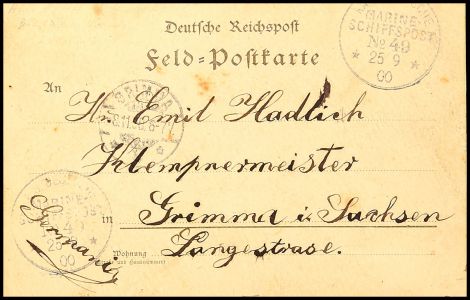 Deutsche Reichspost
Feld-Postkarte
MARINE-
SCHIFFSPOST
No 49
* 25 9 *
00
An
GRIMMA
Hr. Emil Hadlich
Klempnermeister
in Grimma i. Sachsen
Langestrasse.
Wohnung
(Straße und Hausnummer)
Germania